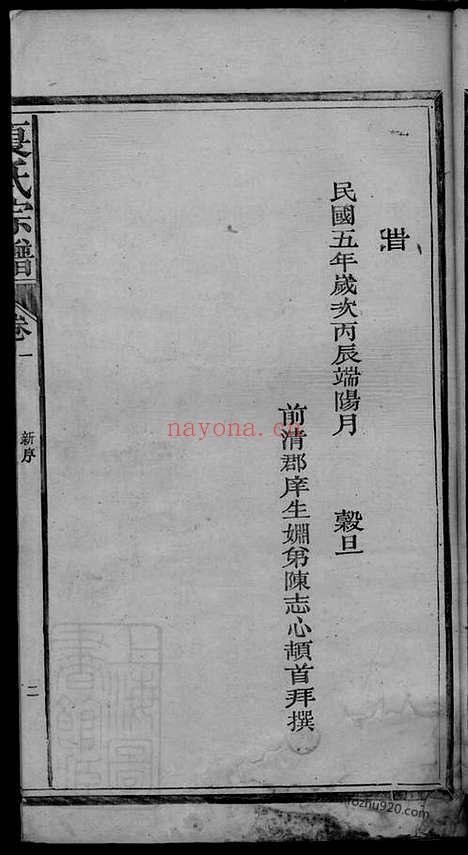 時
民國五年歲次丙辰端陽月 穀旦
前清郡庠生姻弟陳志心頓首拜撰
氏宗譜
卷一
新序
二
nayona.cn